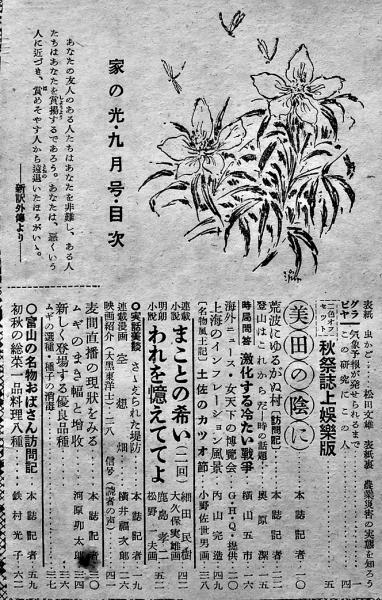 家の光・九月号・目次
あなたの友人のある人たちはあなたを非難し、ある人
たちはあなたを賞揚するであろう。あなたは、悪くいう
人に近づき、賞めそやす人から遠退いたほうがいい。
――新訳外傳より――
表紙 虫かご……松田文雄 表紙裏 農業災害の実態を衝く
グラビヤ 気象予報が発せられるまで 一
この研究にこの人 四一
二色オフセット 秋祭誌上娯樂版
美田の陰に 本誌記者 一〇
荒波にゆるがぬ村〔訪問記〕 本誌記者 二二
登山はこれからだ―時の話題 奥原潔 一五
時局問答 激化する冷たい戦爭 横山五市 一六
海外ニュース・女天下の博覧会 G・H・Q・提供 二〇
上海のインフレーション風景 内山完造 四九
〔名物風土記〕土佐のカツオ節 小野佐世男画 三八
連載小説 まことの希い(二回) 細田民樹 大久保実雄画 四二
明朗小説 われを憶えててよ 鹿島孝二 松野一夫画 五二
◎実話美談 さゝえられた堤防 本誌記者 一九
連載漫画 空想畑 横井福次郎 二六
映画紹介(大黒東洋士)二八 信号(読者の声) 四六
麦間直播の現状をみる 本誌記者 三〇
ムギのまき幅と増收 河原卯太郎 三四
新しく登場する優良品種 三六
ムギの選種、種子の消毒 三三
◎富山の名物おばさん訪問記 本誌記者 五九
初秋の総菜一品料理八種 鉄村光子 六二